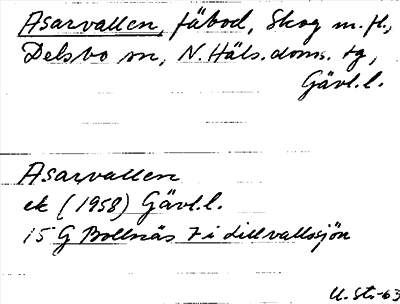 Asarvallen, fäbod, Skog m.fl.,
Delsbo sn, N. Häls. doms. tg,
Gävl.l.
Asarvallen
ek (1958) Gävl.l.
15 G Bollnäs 7 i Lillvallssjön
U. Str-63